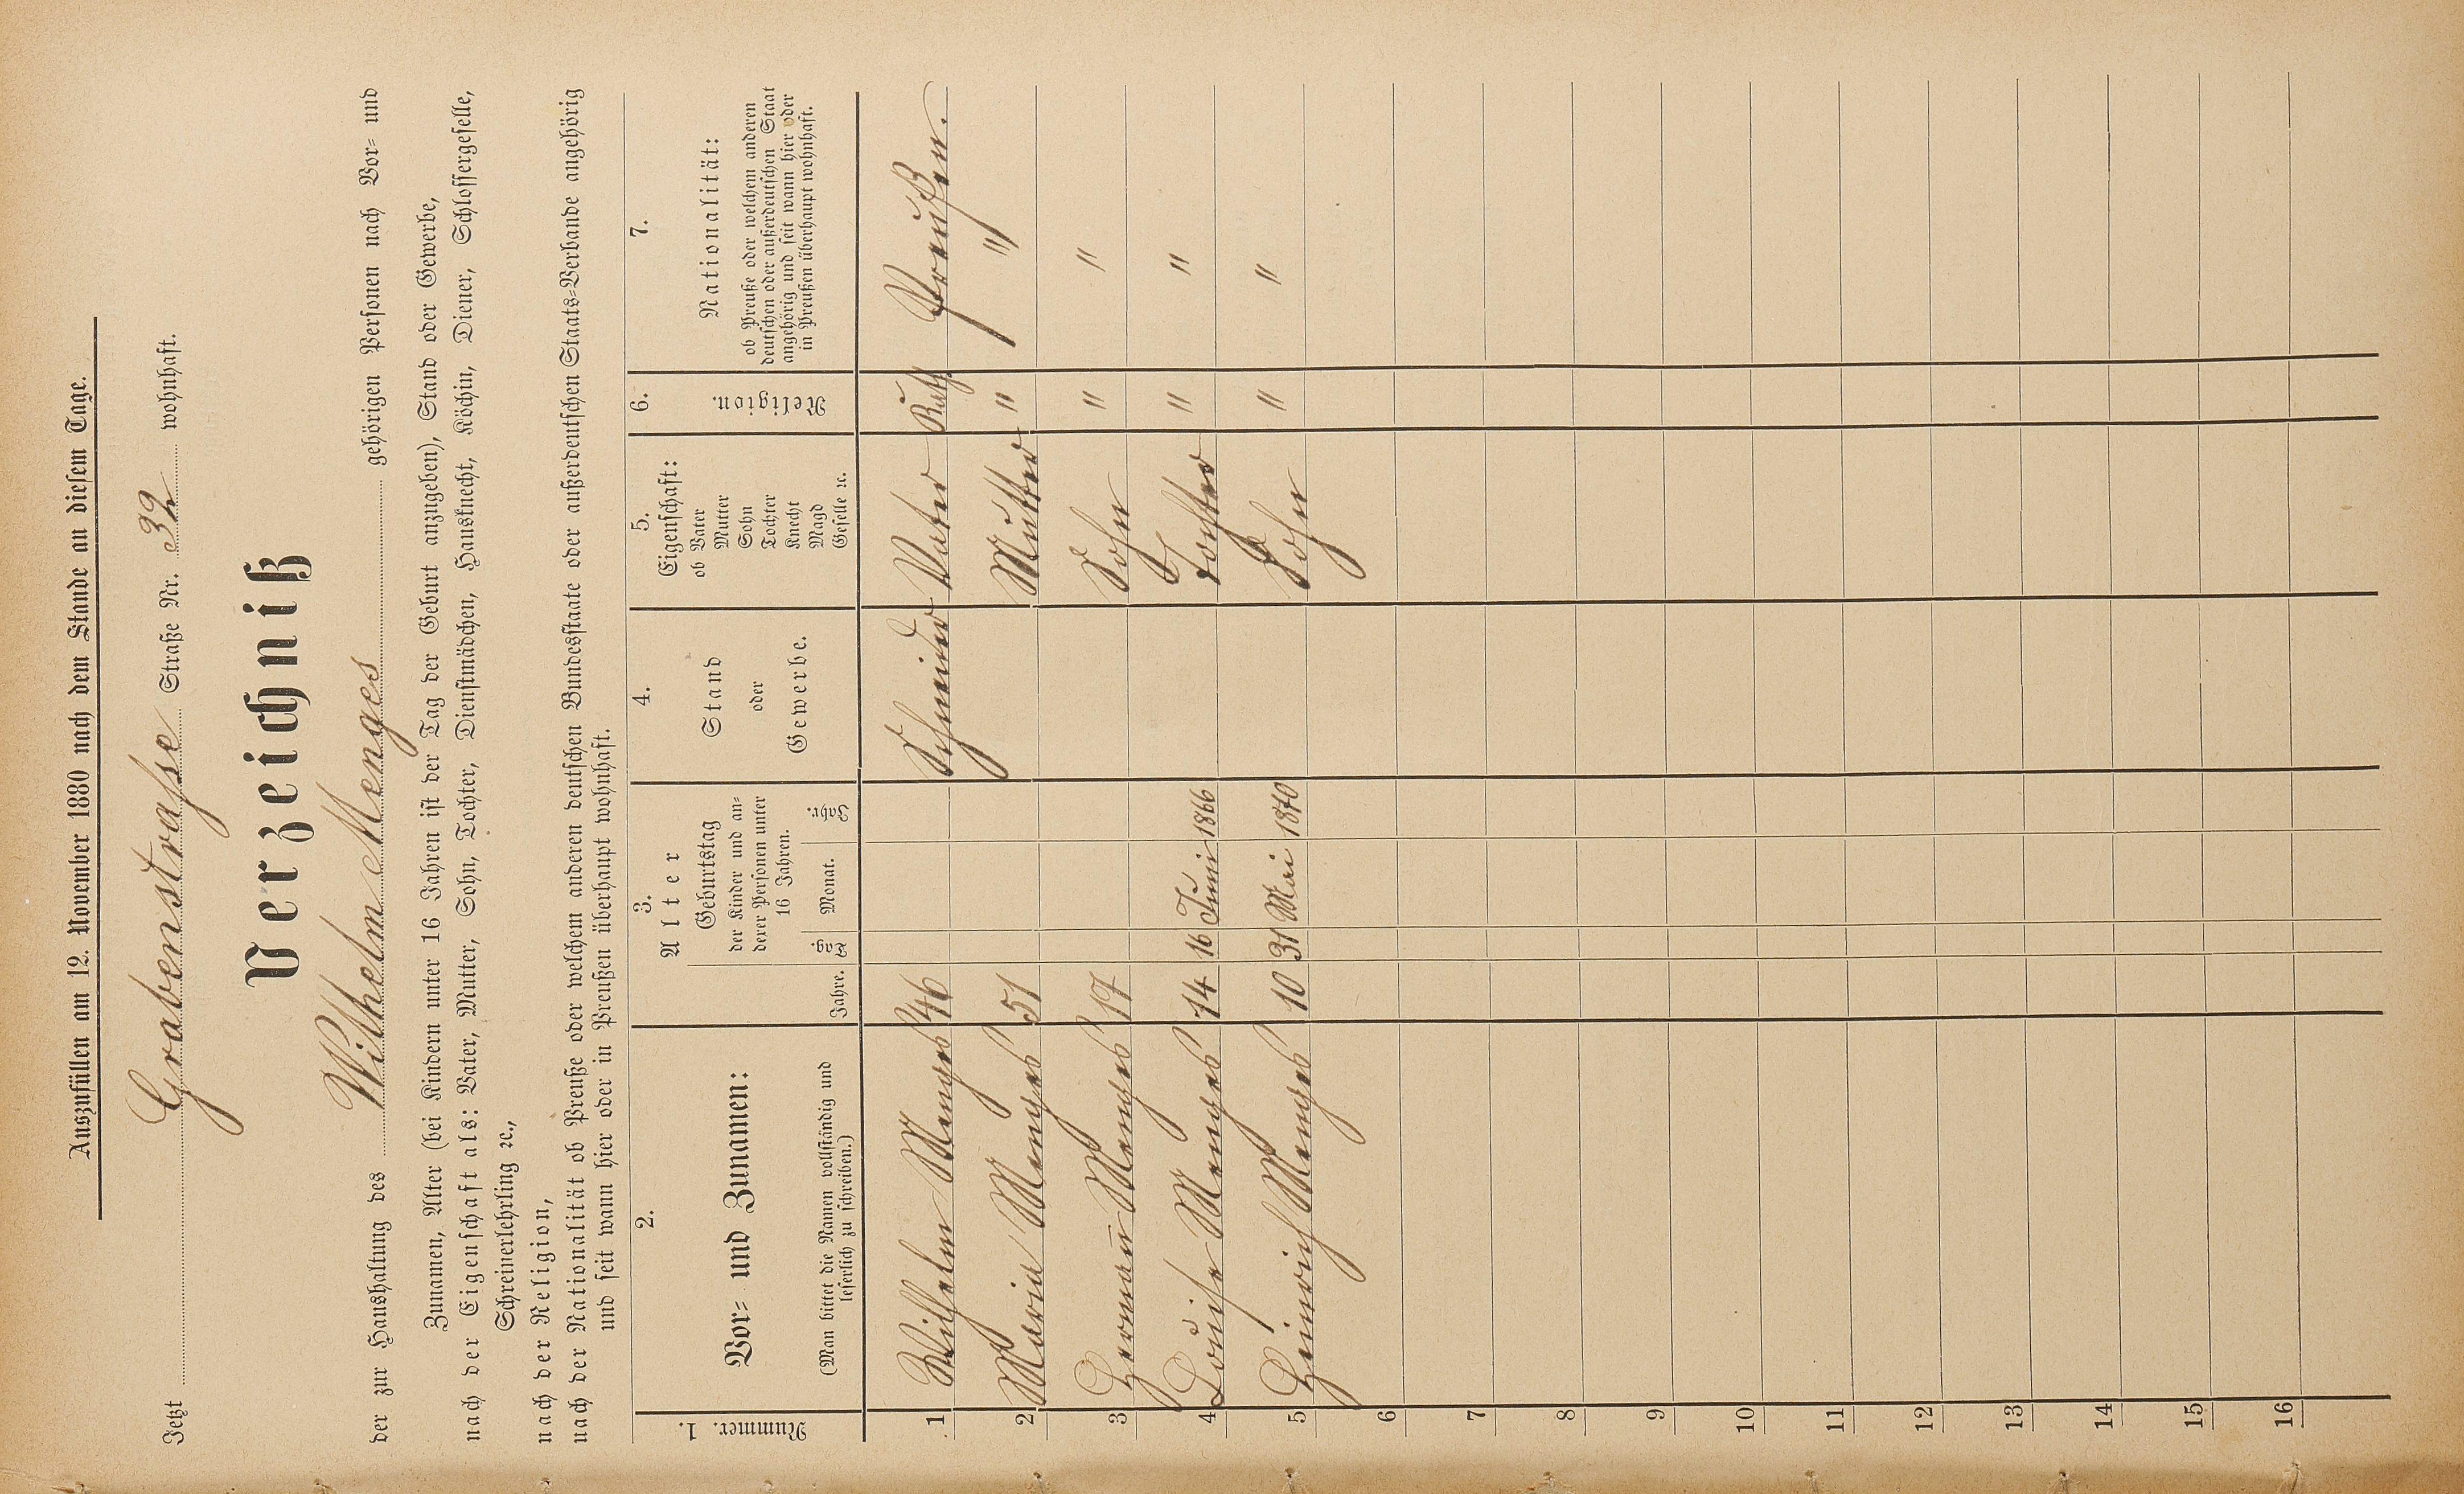 Auszufüllen am 12. November 1880 nach dem Stande an diesem Tage.
Jetzt Grabenstrasse Straße Nr. 32 wohnhaft.
Verzeichniß
der zur Haushaltung des Wilhelm Menges gehörigen Personen nach Vor- und
Zunamen, Alter (bei Kindern unter 16 Jahren ist der Tag der Geburt anzugeben), Stand oder Gewerbe,
nach der Eigenschaft als: Vater, Mutter, Sohn, Tochter, Dienstmädchen, Hausknecht, Köchin, Diener, Schlossergeselle,
Schreinerlehrling ꝛc.,
nach der Religion,
nach der Nationalität ob Preuße oder welchem anderen deutschen Bundesstaate oder außerdeutschen Staats-Verbande angehörig
und seit wann hier oder in Preußen überhaupt wohnhaft.
Nummer. 1.
2.
Vor- und Zunamen:
(Man bittet die Namen vollständig und
leserlich zu schreiben.)
3.
Alter
Jahre.
Geburtstag
der Kinder und an-
derer Personen unter
16 Jahren.
Tag. Monat. Jahr.
4.
Stand
oder
Gewerbe.
5.
Eigenschaft:
ob Vater
Mutter
Sohn
Tochter
Knecht
Magd
Geselle ꝛc.
6.
Religion.
7.
Nationalität:
ob Preuße oder welchem anderen
deutschen oder außerdeutschen Staat
angehörig und seit wann hier oder
in Preußen überhaupt wohnhaft.
1 Wilhelm Menges 46 Schneider Vater Kath Preußen.
2 Maria Menges 51 Mutter " "
3 Hermañ Menges 17 Sohn " "
4 Louise Menges 14 16 Juni 1866 Tochter " "
5 Heinrich Menges 10 31 Mai 1870 Sohn " "
6
7
8
9
10
11
12
13
14
15
16